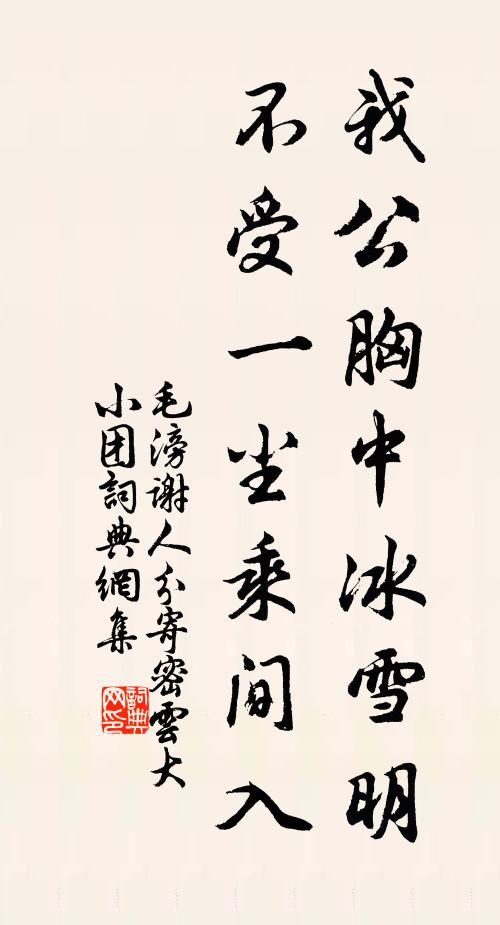 我公胸中冰雪明
不受一尘乘间入
毛滂谢人分寄密雲大
小团詞典網集
詞典网印